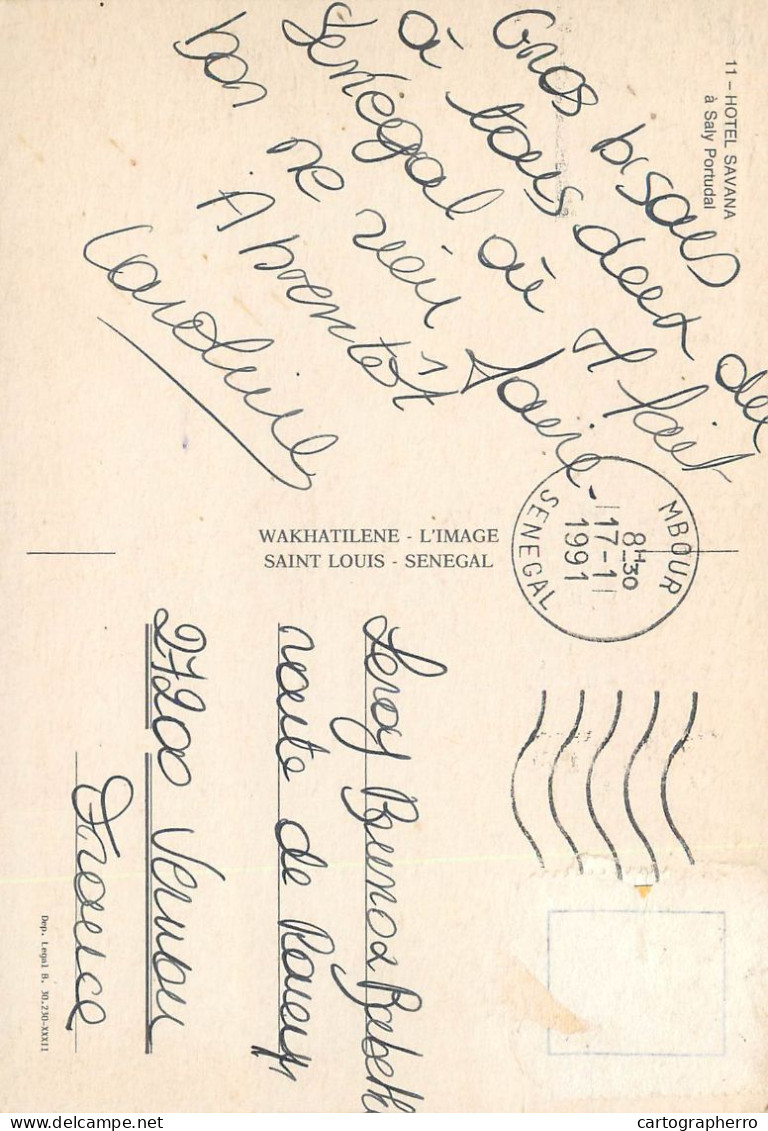 11 – HOTEL SAVANA
à Saly Portudal
Gros bisous
à tous deux du
Sénégal où il fait
bon ne rien faire -
A bientôt
Caroline
WAKHATILENE - L'IMAGE
SAINT LOUIS - SENEGAL
MBOUR
8H30
17-1
1991
SENEGAL
Leroy Bruno & Babeth
route de Rouen
27200 Vernon
France
Dep. Legal B. 30.230-XXXII
delcampe.net
cartographerro